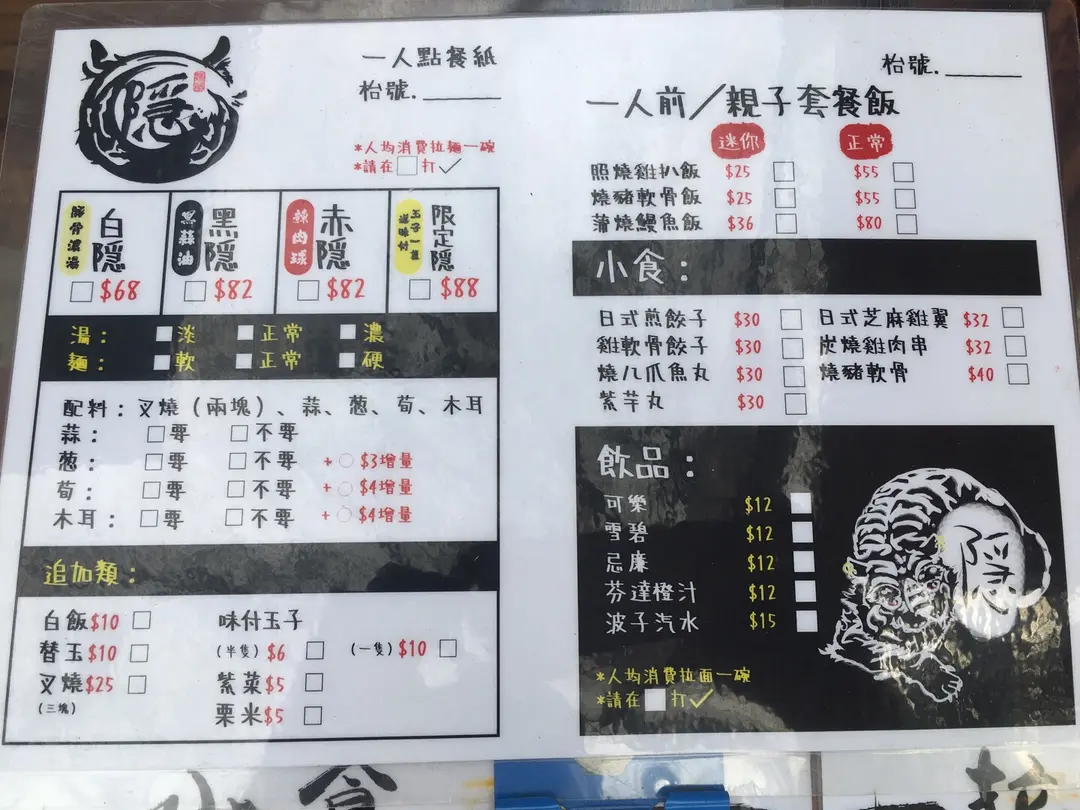 隱
一人點餐紙
枱號.
*人均消費拉麵一碗
*請在□打✓
豚骨濃湯 白隱 □ $68
黑蒜油 黑隱 □ $82
辣肉球 赤隱 □ $82
限定隱 □ $88
湯： □淡 □正常 □濃
麵： □軟 □正常 □硬
配料：叉燒（兩塊）、蒜、葱、荀、木耳
蒜： □要 □不要
葱： □要 □不要 +○$3增量
荀： □要 □不要 +○$4增量
木耳： □要 □不要 +○$4增量
追加類：
白飯$10 □
替玉$10 □
叉燒$25 □
(三塊)
味付玉子
(半隻) $6 □ (一隻) $10 □
紫菜$5 □
栗米$5 □
枱號.
一人前／親子套餐飯
迷你 正常
照燒雞扒飯 $25 □ $55 □
燒豬軟骨飯 $25 □ $55 □
蒲燒鰻魚飯 $36 □ $80 □
小食：
日式煎餃子 $30 □ 日式芝麻雞翼 $32 □
雞軟骨餃子 $30 □ 炭燒雞肉串 $32 □
燒八爪魚丸 $30 □ 燒豬軟骨 $40 □
紫芋丸 $30 □
飲品：
可樂 $12 □
雪碧 $12 □
忌廉 $12 □
芬達橙汁 $12 □
波子汽水 $15 □
隱
*人均消費拉面一碗
*請在□打✓
小食